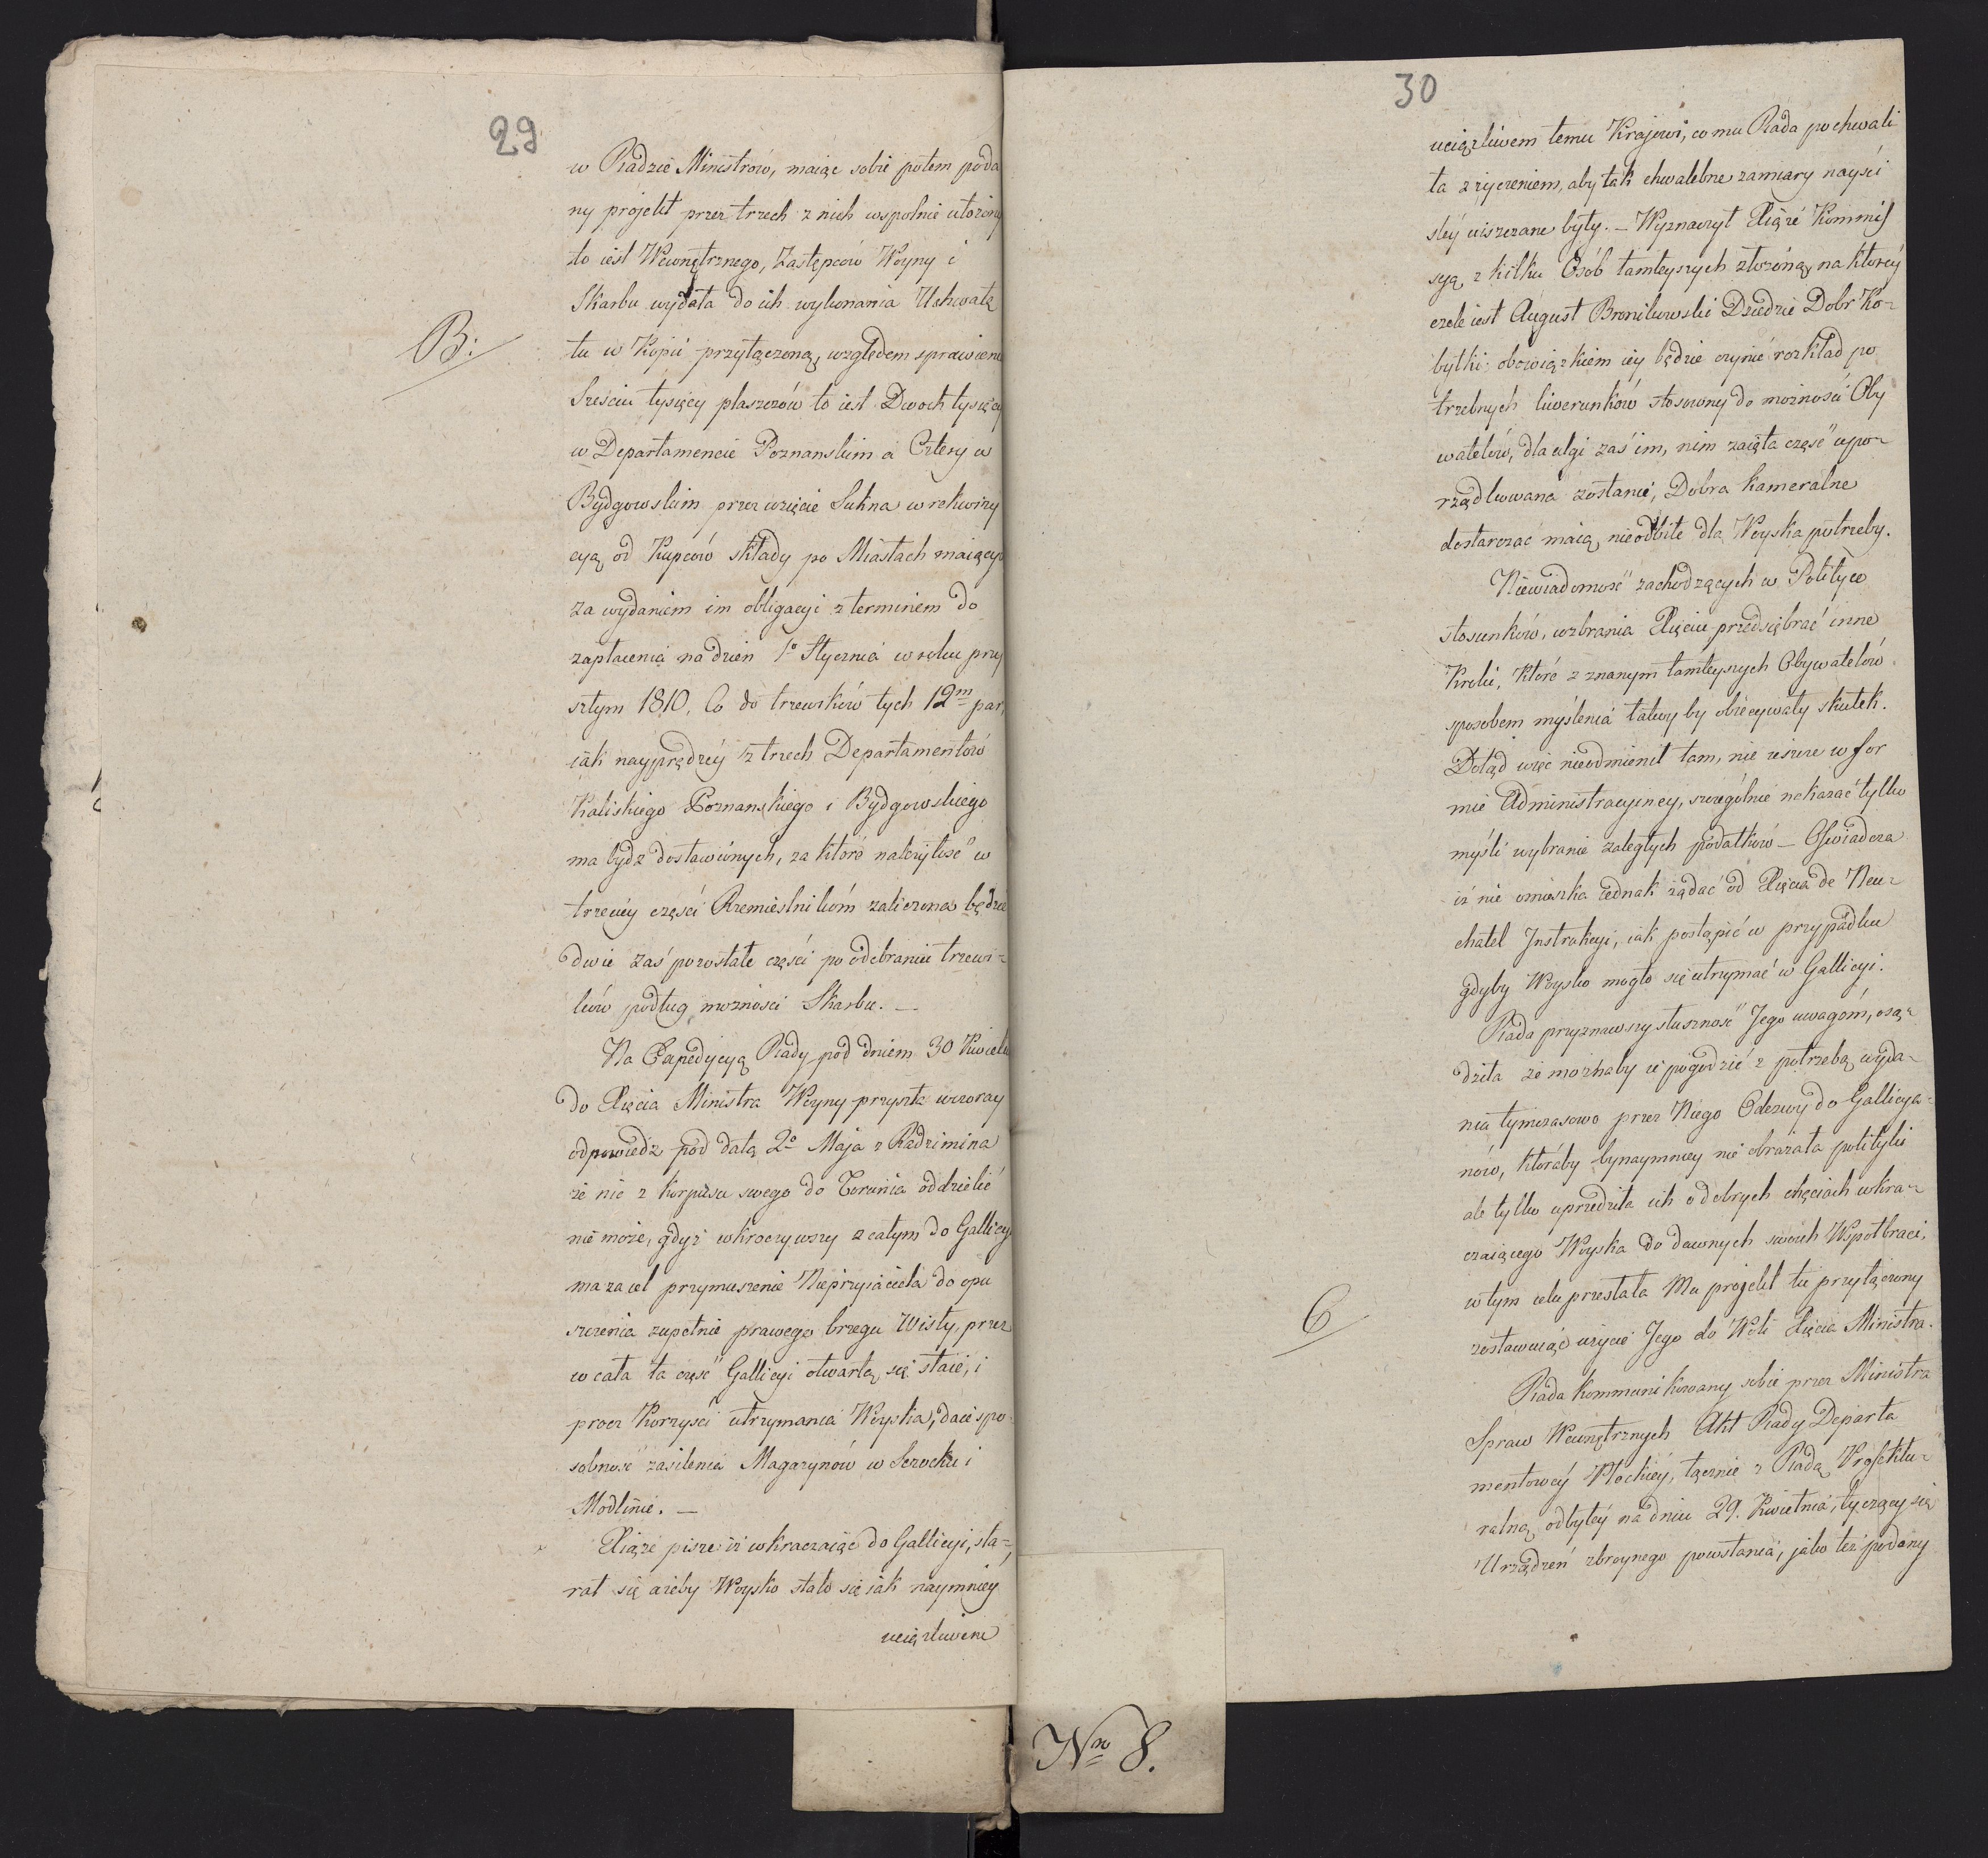 29
w Radzie Ministrow, maiąc sobie potem poda
ny projekt przez trzech z nich wspolnie ułożony
to iest Wewnętrznego, Zastępców Woyny i
Skarbu wydała do ich wykonania Uchwałę
B:
tu w Kopii przyłączoną, względem sprawienia
Sześciu tysięcy płaszczów to iest Dwoch tysięcy
w Departamencie Poznanskim a Cztery w
Bydgowskim przez wzięcie Sukna w rekwizy
cyą od Kupców składy po Miastach maiących
za wydaniem im obligacyi z terminem do
zapłacenia na dzien 1º Stycznia w roku przy
szłym 1810. Co do trzewików tych 12m par,
iak nayprędzéy z trzech Departamentów
Kaliskiego Poznanskiego i Bydgowskiego
ma bydz dostawionych, za które należytość w
trzeciey części Rzemieslnikóm zaliczona będzie
dwie zaś pozostałe części po odebraniu trzewi-
ków podług możności Skarbu. —
Na Expedycyą Rady pod dniem 30 Kwietn
do Xięcia Ministra Woyny przyszła wczoray
odpowiedz pod datą 2º Maja z Radzimina
że nic z korpusu swego do Torunia oddzielić
nie może, gdyż wkroczywszy z całym do Gallicyi
ma za cel przymuszenie Nieprzyiaciela do opu
szczenia zupełnie prawego brzegu Wisły, przez
co cała ta część Gallicyi otwartą się staie, i
procz Korzyści utrzymania Woyska, daie spo-
sobność zasilenia Magazynów w Serocku i
Modlinie. —
Xiąże pisze iż wkraczaiąc do Gallicyi, sta-
rał się ażeby Woysko stało się iak naymniey
uciążliwem
30
uciążliwem temu Krajowi, co mu Rada pochwali
ła z życzeniem, aby tak chwalebne zamiary nayści
sléy uiszczane były. — Wyznaczył Xiąże Kommis
syą z kilku Osób tamteyszych złożoną, na któréy
czele iest August Bronikowski Dziedzic Dobr Ko-
byłki; obowiązkiem iey będzie czynić rozkład po
trzebnych liwerunków stosowny do możności Oby
watelów, dla ulgi zaś im, nim zaięta część upo-
rządkowana zostanie, Dobra Kameralne
dostarczać maią nieodbite dla Woyska potrzeby.
Niewiadomość zachodzących w Polityce
stosunków, wzbrania Xięciu przedsiębrać inne
Kroki, które z znanym tamteyszych Obywatelów
sposobem myślenia łatwy by obiecywały skutek.
Dotąd więc nieodmienił tam, nic ieszcze w for
mie Administracyiney, szczególnie nakazać tylko
myśli wybranie zaległych podatków — Oświadcza
iż nie omieszka iednak żądać od Xięcia de Neu-
chatel Instrukcyi, iak postąpić w przypadku
gdyby Woysko mogło się utrzymać w Gallicyi.
Rada przyznawszy słuszność Jego uwagóm, osą-
dziła że możnaby ie pogodzić z potrzebą wyda-
nia tymczasowo przez Niego Odezwy do Gallicya-
nów, któraby bynaymniey nie obrażała polityki
ale tylko uprzedziła ich o dobrych chęciach wkra-
czaiącego Woyska do dawnych swoich Współbraci,
C
w tym celu przesłała Mu projekt tu przyłączony
zostawuiąc użycie Jego do Woli Xięcia Ministra.
Rada kommunikowany sobie przez Ministra
Spraw Wewnętrznych Akt Rady Departa
mentowéy Płockiéy, łącznie z Radą Prefektu-
ralną, odbytéy na dniu 29. Kwietnia, tyczący się
Urządzeń zbroynego powstania, jako też podany
Nro 8.